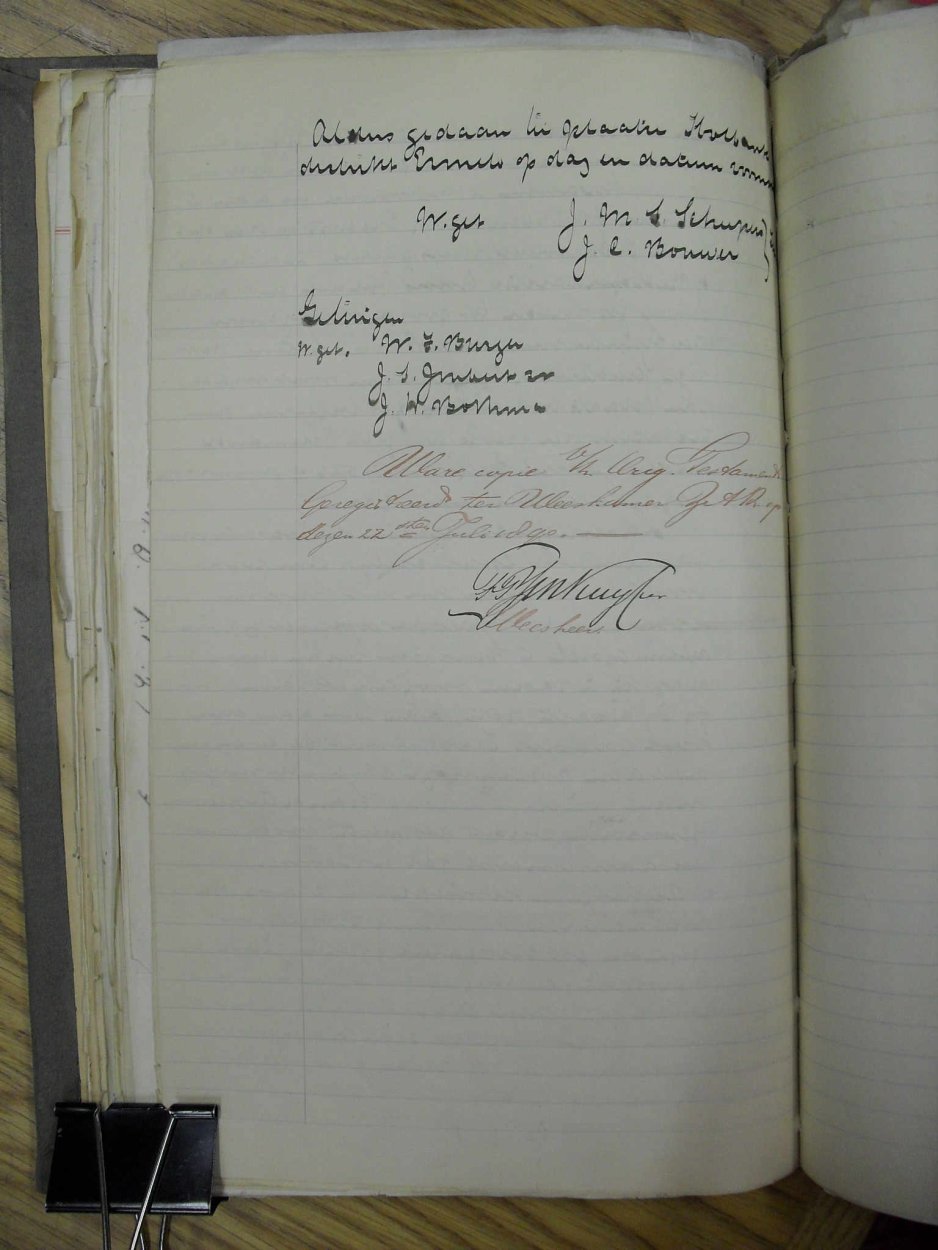 Aldus gedaan te plaatse Holbank
distrikt Ermelo op dag en datum voorm
W. get J. M. C. Scheepers
J. C. Bouwer
Getuigen
W. get. W. F. Burger
J. S. Joubert zn
J. H. Bothma
Ware copie v/h Orig. Testament
Geregistreerd ter Weeskamer Z A R op
dezen 22sten Juli 1890.
Weesheer